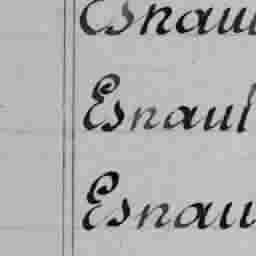 Esnaul
Esnaul
Esnau